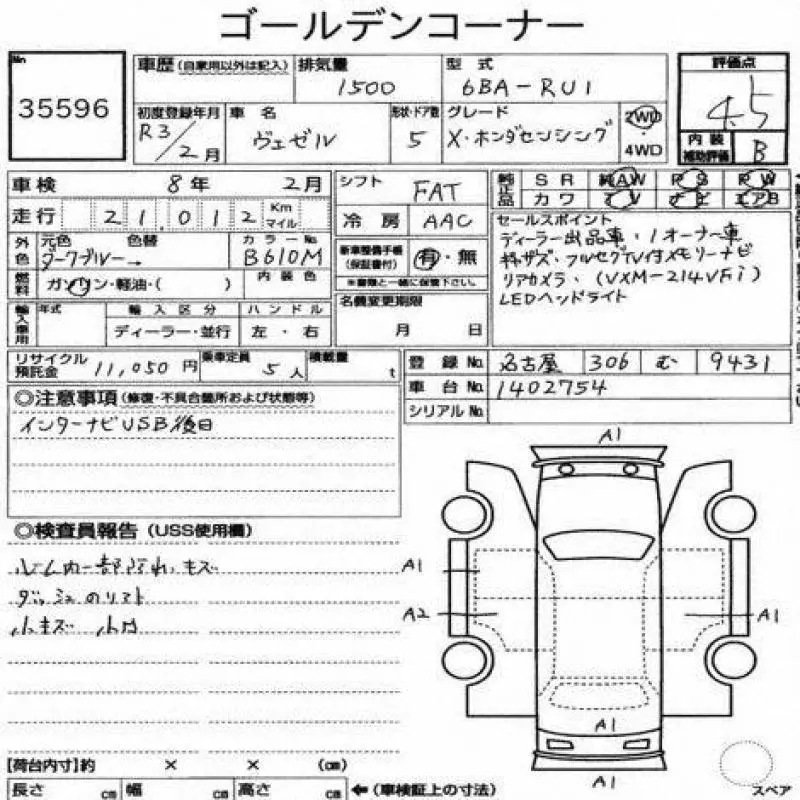 ゴールデンコーナー
No 35596
車歴 (自家用以外は記入)
排気量 1500
型式 6BA-RU1
評価点 4.5
初度登録年月 R3/2月
車名 ヴェゼル
形状・ドア数 5
グレード X・ホンダセンシング
2WD・4WD
内装補助評価 B
車検 8年 2月
シフト FAT
純正品 SR 純AW PS PW
カワ TV ナビ エアB
走行 21,012 Km マイル
冷房 AAC
外色 元色 色替 ダークブルー→
カラーNo. B610M
新車整備手帳(保証書付) 有・無
※書類と一緒に保管下さい。
セールスポイント
ディーラー出品車・1オーナー車
フルセグTV付メモリーナビ
リアカメラ、(VXM-214VFi)
LEDヘッドライト
燃料 ガソリン・軽油・( )
内装色
名義変更期限 月 日
輸入車用 年式 輸入区分 ハンドル
ディーラー・並行 左・右
リサイクル預託金 11,050円
乗車定員 5人
積載量 t
登録No. 名古屋 306 む 9431
車台No. 1402754
シリアルNo.
◎注意事項 (修復・不具合箇所および状態等)
インターナビUSB後日
◎検査員報告 (USS使用欄)
キズ
ダッシュ
小キズ 小凹
A1
A1
A2
A1
A1
A1
【荷台内寸】約 × × (cm)
長さ cm 幅 cm 高さ cm ←(車検証上の寸法)
スペア